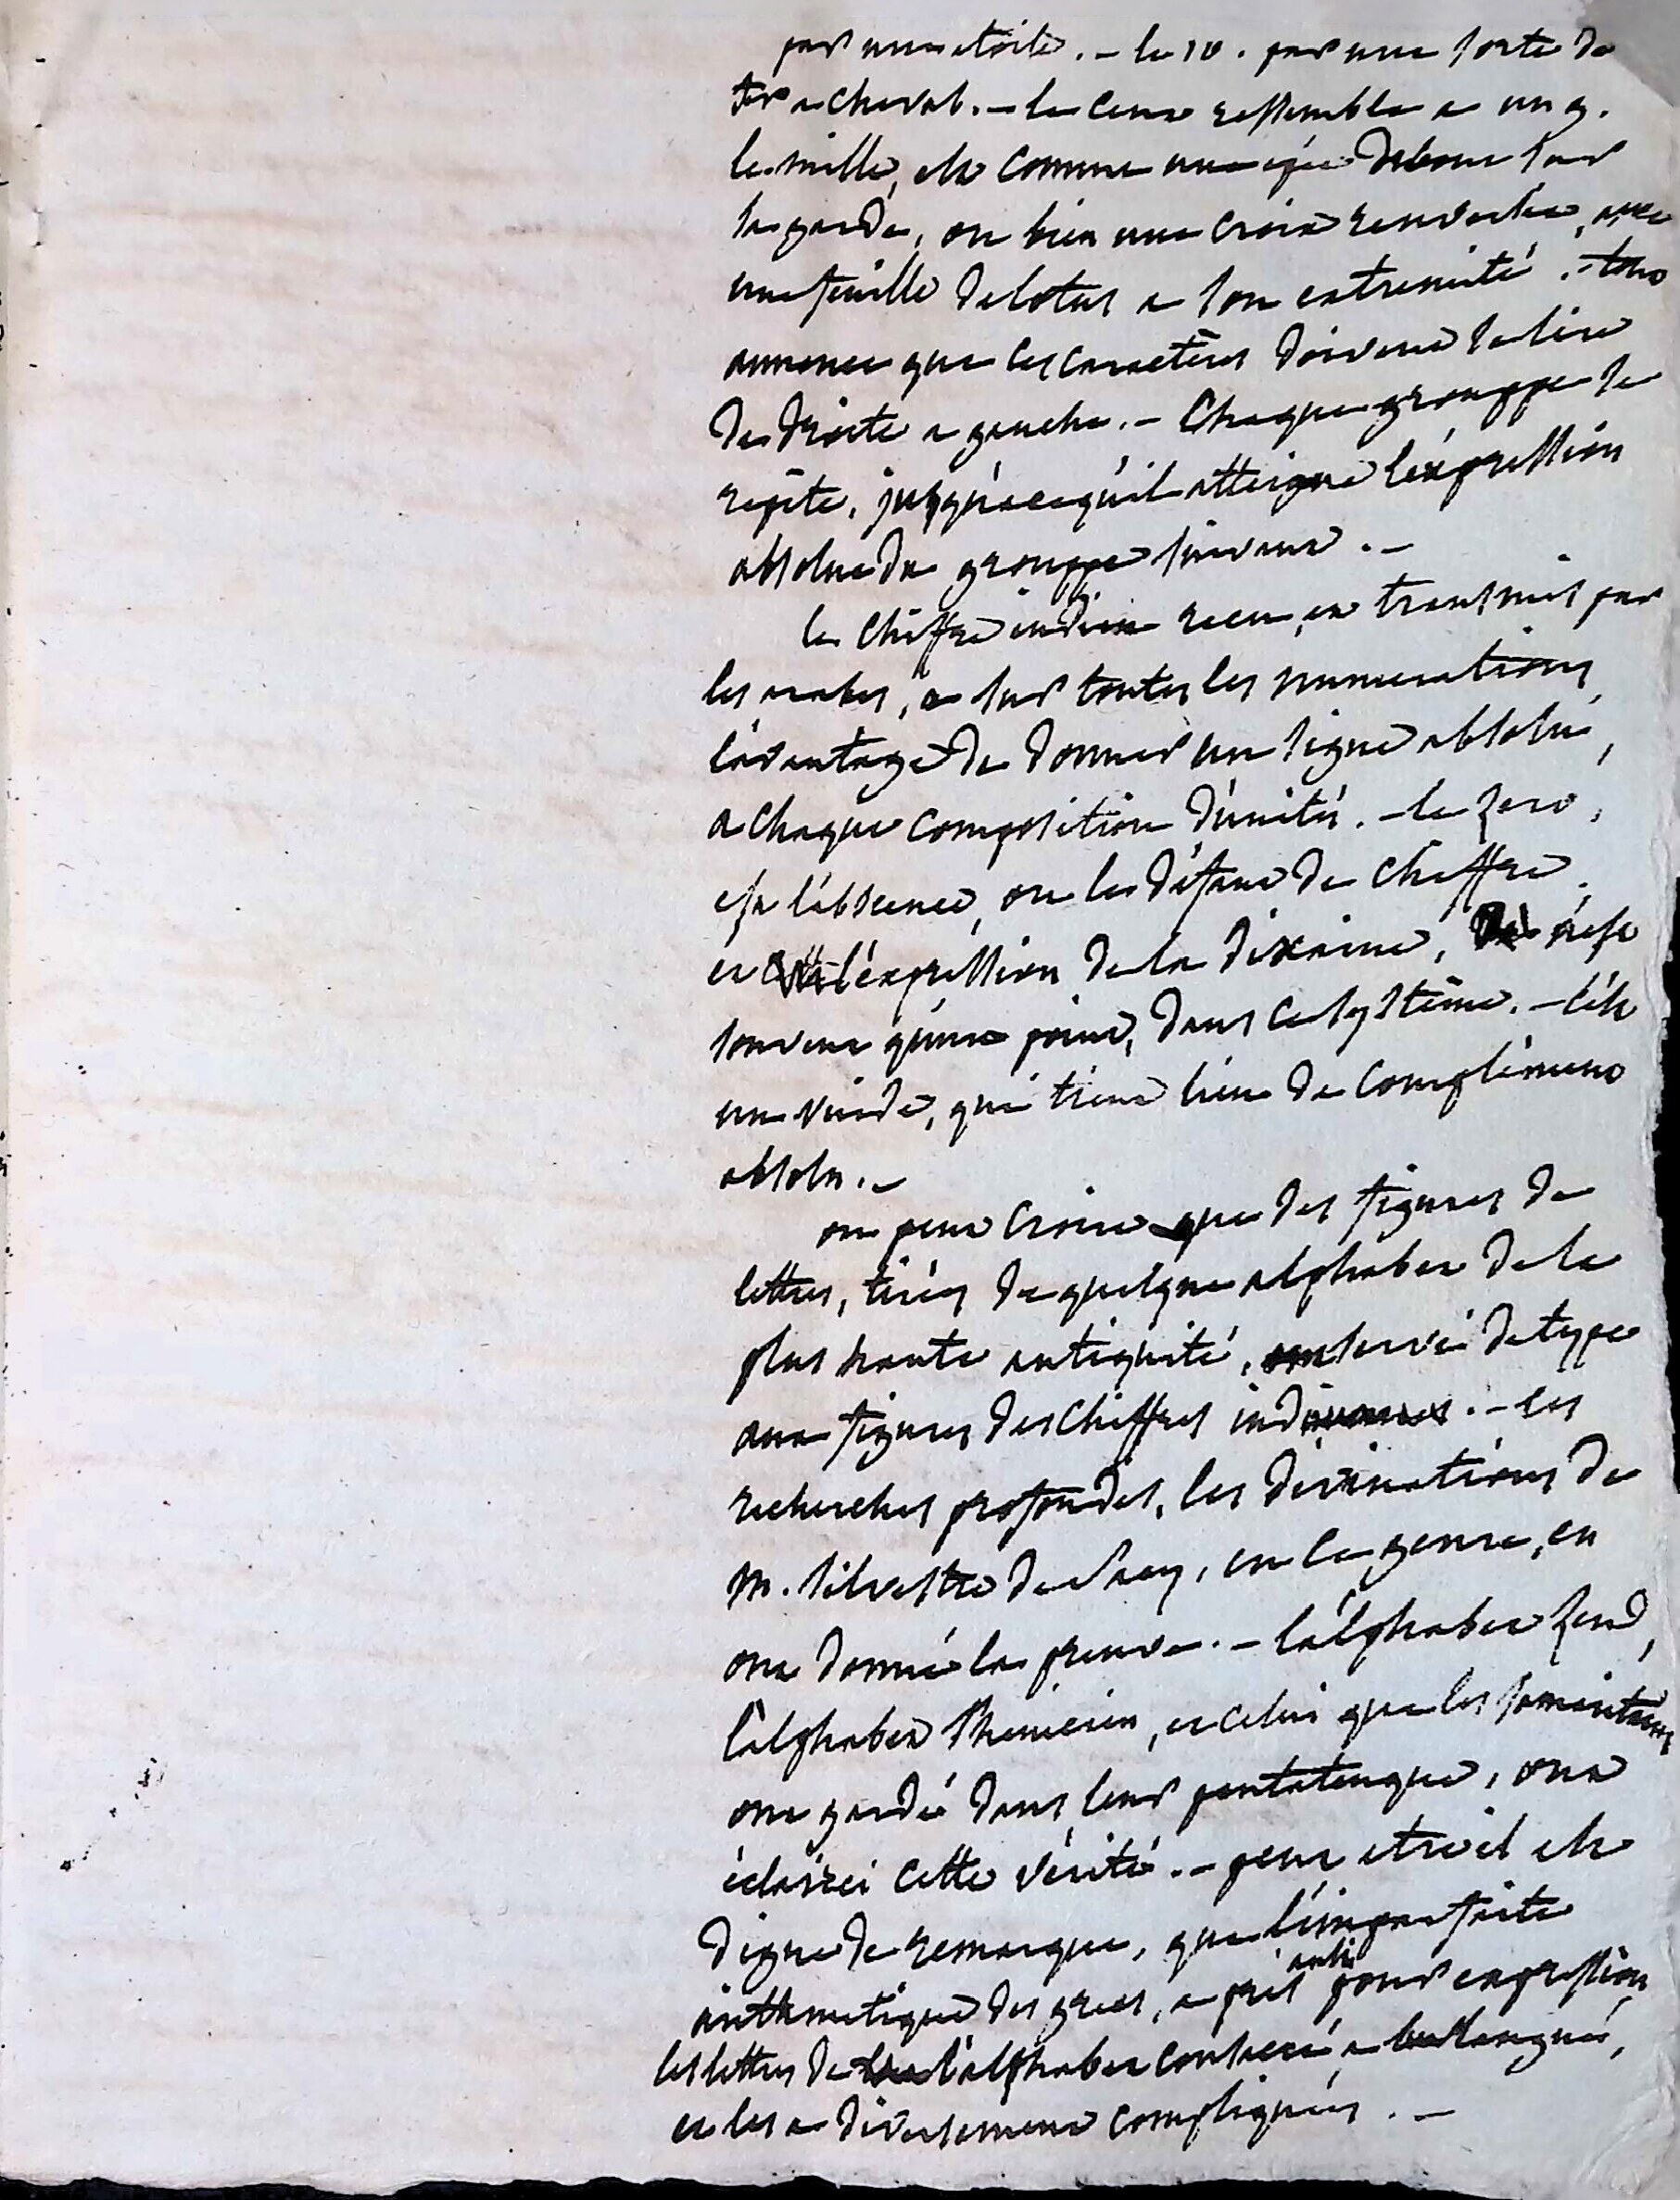 par une etoile. – le 10. par une sorte de
fer a cheval. – le cent ressemble a un 9.
le mille, est comme une épée debout sur
sa garde, ou bien une croix renversée, avec
une feuille de lotus a son extremité. – tout
annonce que ces caractères doivent se lire
de droite a gauche. – Chaque grouppe se
repète, jusqu'a ce qu'il atteigne l'expression
absolue du grouppe suivant. –
le chiffre indien recu, et transmis par
les arabes, a sur toutes les numerations,
l'avantage de donner un signe absolu,
a chaque composition d'unités. – le zero,
est l'absence, ou le défaut de chiffre,
et l'expression de la dixaine, n'est
souvent qu'un point, dans ce systême. – c'est
un vuide, qui tient lieu de complément
absolu. –
on peut croire que des figures de
lettres, tirées de quelque alphabet de la
plus haute antiquité, ont servi de type
aux figures des chiffres indiens. – les
recherches profondes, les divinations de
M. Silvestre de Sacy, en ce genre, en
ont donné la preuve. – l'alphabet Zend,
l'alphabet Phenicien, et celui que les samaritains
ont gardé dans leur pentateuque, ont
éclairci cette vérité. – peut etre il est
digne de remarque, que l'imparfaite
arithmetique des grecs, a pris aussi pour expression
les lettres de l'alphabet consacré a la langue,
et les a diversement compliquées. –